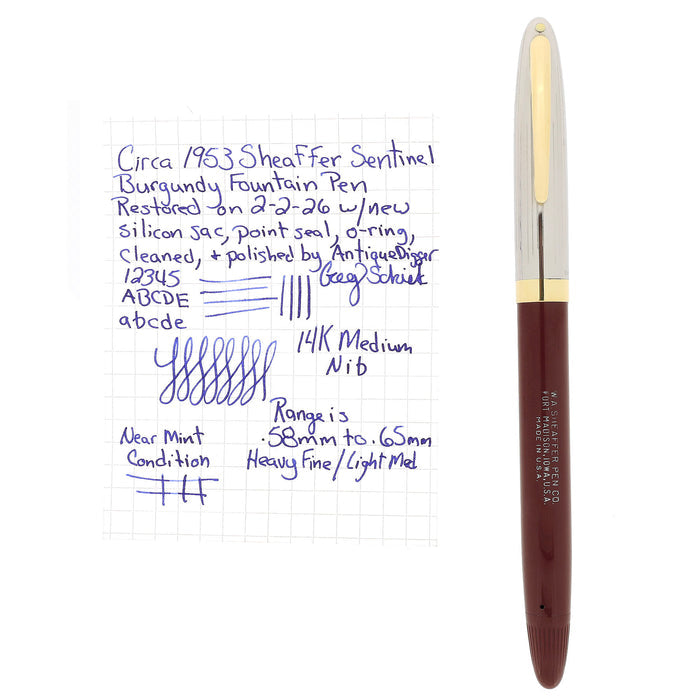 Circa 1953 Sheaffer Sentinel
Burgundy Fountain Pen
Restored on 2-2-26 w/new
silicon sac, point seal, o-ring,
cleaned, + polished by AntiqueDigger
12345
ABCDE
abcde
Greg
14K Medium
Nib
Range is
.58mm to .65mm
Heavy Fine/Light Med
Near Mint
Condition
W.A. SHEAFFER PEN CO.
FORT MADISON, IOWA, U.S.A.
MADE IN U.S.A.